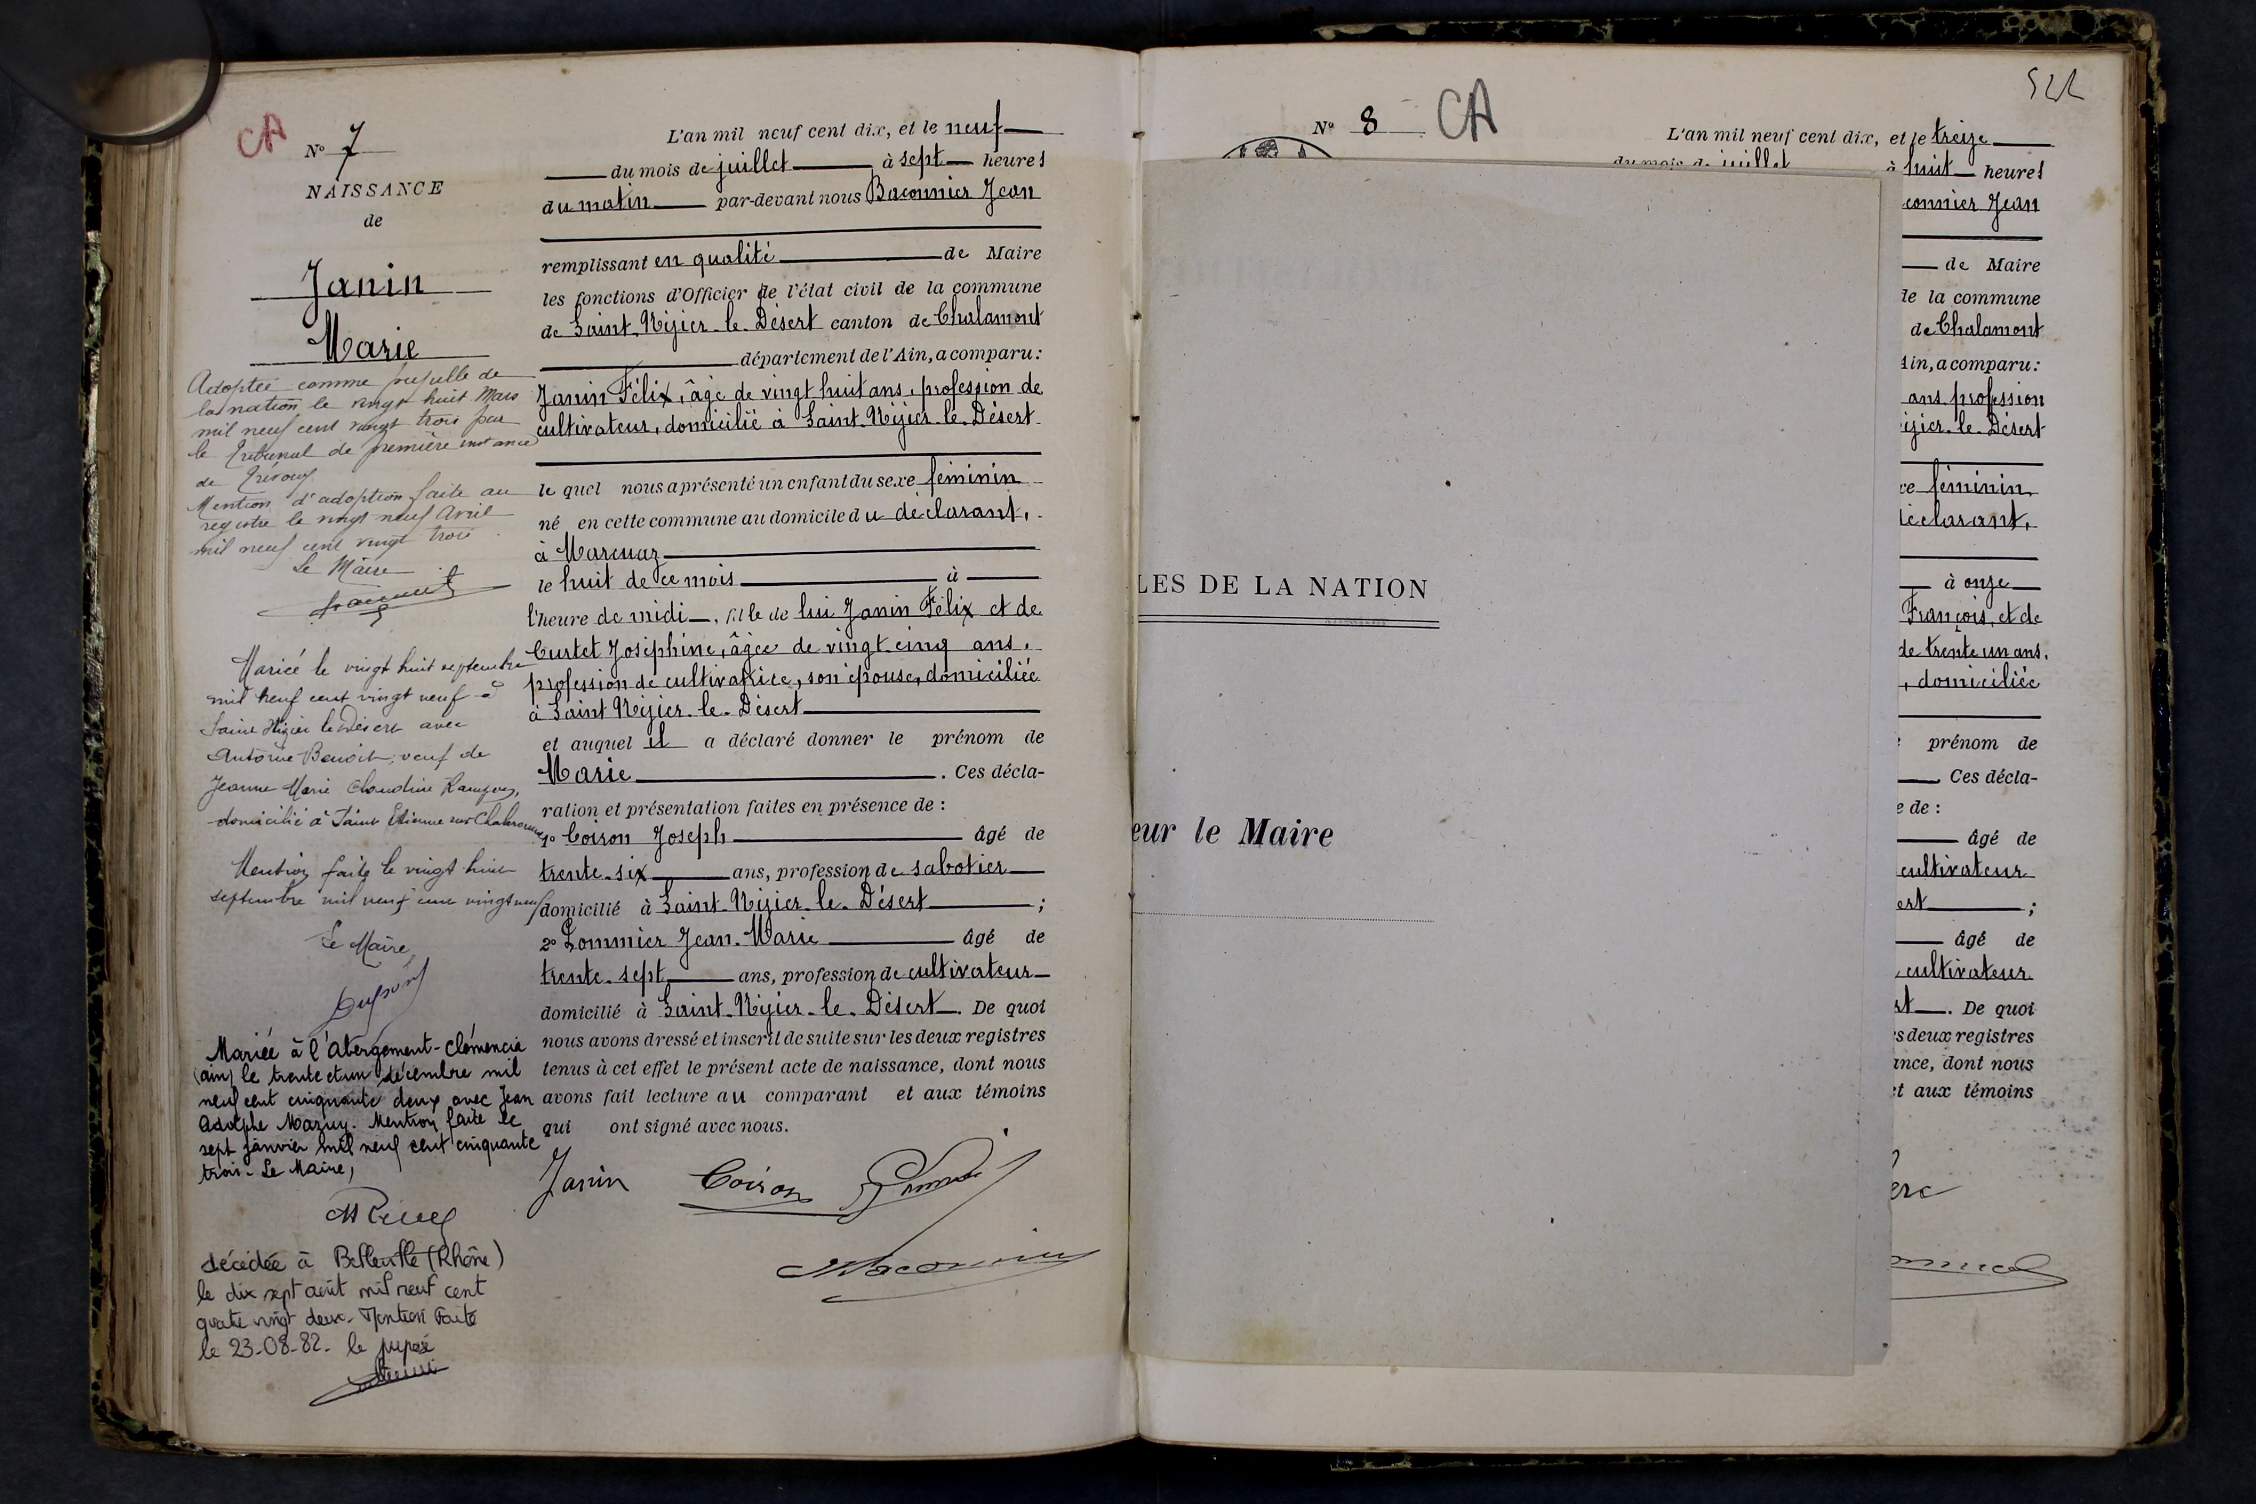 CA
N° 7
NAISSANCE
de
Janin
Marie
Adoptée comme pupille de
la nation le vingt huit Mars
mil neuf cent vingt trois par
le Tribunal de première instance
de Trévoux
Mention d'adoption faite au
registre le vingt neuf Avril
mil neuf cent vingt trois
Le Maire
Mariée le vingt huit septembre
mil neuf cent vingt neuf à
Saint Nizier le Désert avec
Antoine Benoit, veuf de
Jeanne Marie Claudine
domicilié à Saint Etienne sur Chalaronne
Mention faite le vingt huit
septembre mil neuf cent vingt neuf
Le Maire,
Mariée à l'Abergement-Clémencia
(ain) le trente et un décembre mil
neuf cent cinquante deux avec Jean
Adolphe Mazuy. Mention faite le
sept janvier mil neuf cent cinquante
trois - Le Maire,
décédée à Belleville (Rhône)
le dix sept août mil neuf cent
quatre vingt deux. Mention Faite
le 23-08-82. le
L'an mil neuf cent dix, et le neuf
du mois de juillet à sept heures
du matin par-devant nous Baconnier Jean
remplissant en qualité de Maire
les fonctions d'Officier de l'état civil de la commune
de Saint-Nizier-le-Désert canton de Chalamont
département de l'Ain, a comparu:
Janin Félix, âgé de vingt huit ans, profession de
cultivateur, domicilié à Saint-Nizier-le-Désert
le quel nous a présenté un enfant du sexe féminin
né en cette commune au domicile du déclarant,
à Marcuaz
le huit de ce mois à
l'heure de midi, fille de lui Janin Félix et de
Curtet Joséphine, âgée de vingt-cinq ans,
profession de cultivatrice, son épouse, domiciliée
à Saint Nizier-le-Désert
et auquel il a déclaré donner le prénom de
Marie. Ces décla-
ration et présentation faites en présence de :
1° Coiron Joseph âgé de
trente-six ans, profession de sabotier
domicilié à Saint-Nizier-le-Désert ;
2° Pommier Jean-Marie âgé de
trente-sept ans, profession de cultivateur
domicilié à Saint-Nizier-le-Désert. De quoi
nous avons dressé et inscrit de suite sur les deux registres
tenus à cet effet le présent acte de naissance, dont nous
avons fait lecture au comparant et aux témoins
qui ont signé avec nous.
Janin Coiron
N° 8 CA
L'an mil neuf cent dix, et le treize
du mois de juillet à huit heures
connier Jean
de Maire
de la commune
de Chalamont
Ain, a comparu:
ans profession
izier-le-Désert
LES DE LA NATION
eur le Maire
xe féminin
déclarant,
à onze
François, et de
de trente un ans,
, domiciliée
prénom de
Ces décla-
e de :
âgé de
cultivateur
ert ;
âgé de
cultivateur
rt. De quoi
es deux registres
ance, dont nous
et aux témoins
erc